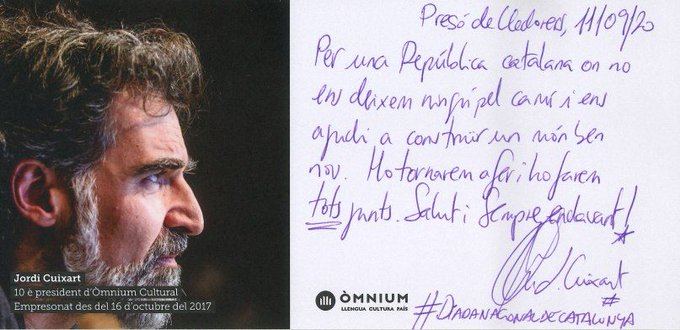 Jordi Cuixart
10 è president d'Òmnium Cultural \
Empresonat des del 16 d'octubre del 2017
Presó de Lledoners, 11/09/20
Per una República catalana on no
ens deixem ningú pel camí i ens
ajudi a construir un món ben
nou. Ho tornarem a fer i ho farem
tots junts. Salut i sempre endavant!
Jordi Cuixart
ÒMNIUM
LLENGUA CULTURA PAÍS
#DIADANACIONALDECATALUNYA